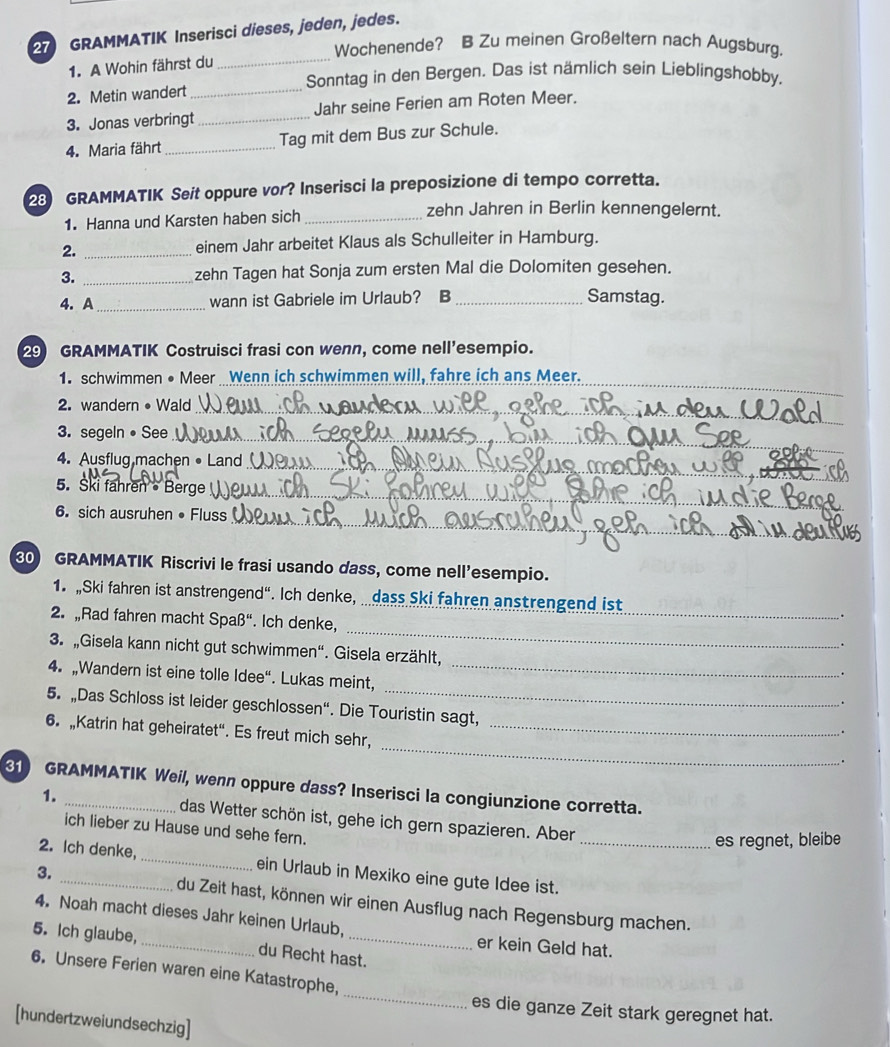 27 GRAMMATIK Inserisci dieses, jeden, jedes.
1. A Wohin fährst du ______ Wochenende? B Zu meinen Großeltern nach Augsburg.
2. Metin wandert ______ Sonntag in den Bergen. Das ist nämlich sein Lieblingshobby.
3. Jonas verbringt ______ Jahr seine Ferien am Roten Meer.
4. Maria fährt ______ Tag mit dem Bus zur Schule.
28 GRAMMATIK Seit oppure vor? Inserisci la preposizione di tempo corretta.
1. Hanna und Karsten haben sich ______ zehn Jahren in Berlin kennengelernt.
2. ______ einem Jahr arbeitet Klaus als Schulleiter in Hamburg.
3. ______ zehn Tagen hat Sonja zum ersten Mal die Dolomiten gesehen.
4. A ______ wann ist Gabriele im Urlaub? B ______ Samstag.
29 GRAMMATIK Costruisci frasi con wenn, come nell'esempio.
1. schwimmen • Meer Wenn ich schwimmen will, fahre ich ans Meer.
2. wandern • Wald Wenn ich wandern will, gehe ich in den Wald
3. segeln • See Wenn ich segeln muss, bin ich am See
4. Ausflug machen • Land Wenn ich ein Ausflug machen will, gehe ich
ins Land
5. Ski fahren • Berge Wenn ich Ski fahren will, fahre ich in die Berge
6. sich ausruhen • Fluss Wenn ich mich ausruhen, geh ich in den Fluss
30 GRAMMATIK Riscrivi le frasi usando dass, come nell'esempio.
1. „Ski fahren ist anstrengend“. Ich denke, dass Ski fahren anstrengend ist.
2. „Rad fahren macht Spaß“. Ich denke, ______.
3. „Gisela kann nicht gut schwimmen“. Gisela erzählt, ______.
4. „Wandern ist eine tolle Idee“. Lukas meint, ______.
5. „Das Schloss ist leider geschlossen“. Die Touristin sagt, ______.
6. „Katrin hat geheiratet“. Es freut mich sehr, ______.
31 GRAMMATIK Weil, wenn oppure dass? Inserisci la congiunzione corretta.
1. ______ das Wetter schön ist, gehe ich gern spazieren. Aber ______ es regnet, bleibe
ich lieber zu Hause und sehe fern.
2. Ich denke, ______ ein Urlaub in Mexiko eine gute Idee ist.
3. ______ du Zeit hast, können wir einen Ausflug nach Regensburg machen.
4. Noah macht dieses Jahr keinen Urlaub, ______ er kein Geld hat.
5. Ich glaube, ______ du Recht hast.
6. Unsere Ferien waren eine Katastrophe, ______ es die ganze Zeit stark geregnet hat.
[hundertzweiundsechzig]